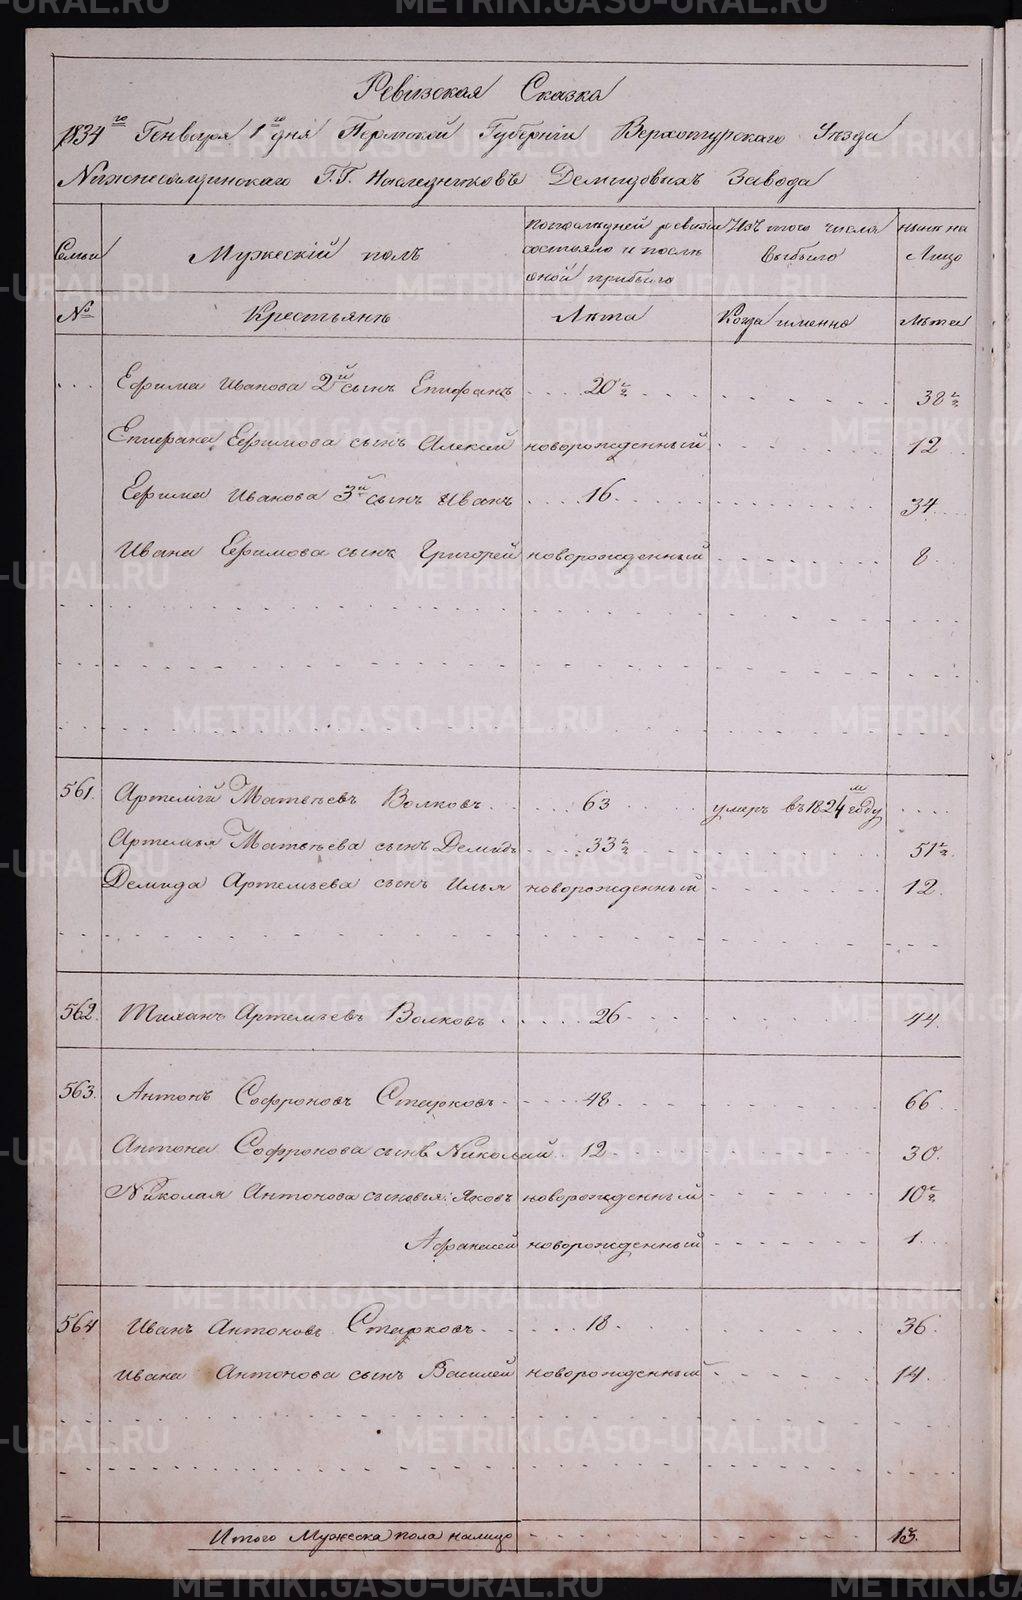 Ревизская Сказка
1834го Генваря 1го дня Пермской Губернии Верхотурскаго Уезда
Нижнесалдинскаго Г.Г. Наследниковъ Демидовыхъ Завода
Семьи Мужескій полъ По последней ревизіи состояло и после оной прибыло Изъ того числа выбыло ныне на лицо
№ Крестьяне Лета Когда именно Лета
Ефима Иванова 2й сынъ Епифанъ 20½ 38½
Епифана Ефимова сынъ Алексей новорожденный 12
Ефима Иванова 3й сынъ Иванъ 16 34
Ивана Ефимова сынъ Григорей новорожденный 8
561. Артемій Матвеевъ Волковъ 63 умеръ въ 1824м году
Артемья Матвеева сынъ Демидъ 33½ 51½
Демида Артемьева сынъ Илья новорожденный 12
562. Тиханъ Артемьевъ Волковъ 26 44
563. Антонъ Софроновъ Старковъ 48 66
Антона Софронова сынъ Николай 12 30
Николая Антонова сыновья: Яковъ новорожденный 10½
Афанасей новорожденный 1
564 Иванъ Антоновъ Старковъ 18 36
Ивана Антонова сынъ Василей новорожденный 14
Итого Мужеска пола налицо 13.
METRIKI.GASO-URAL.RU